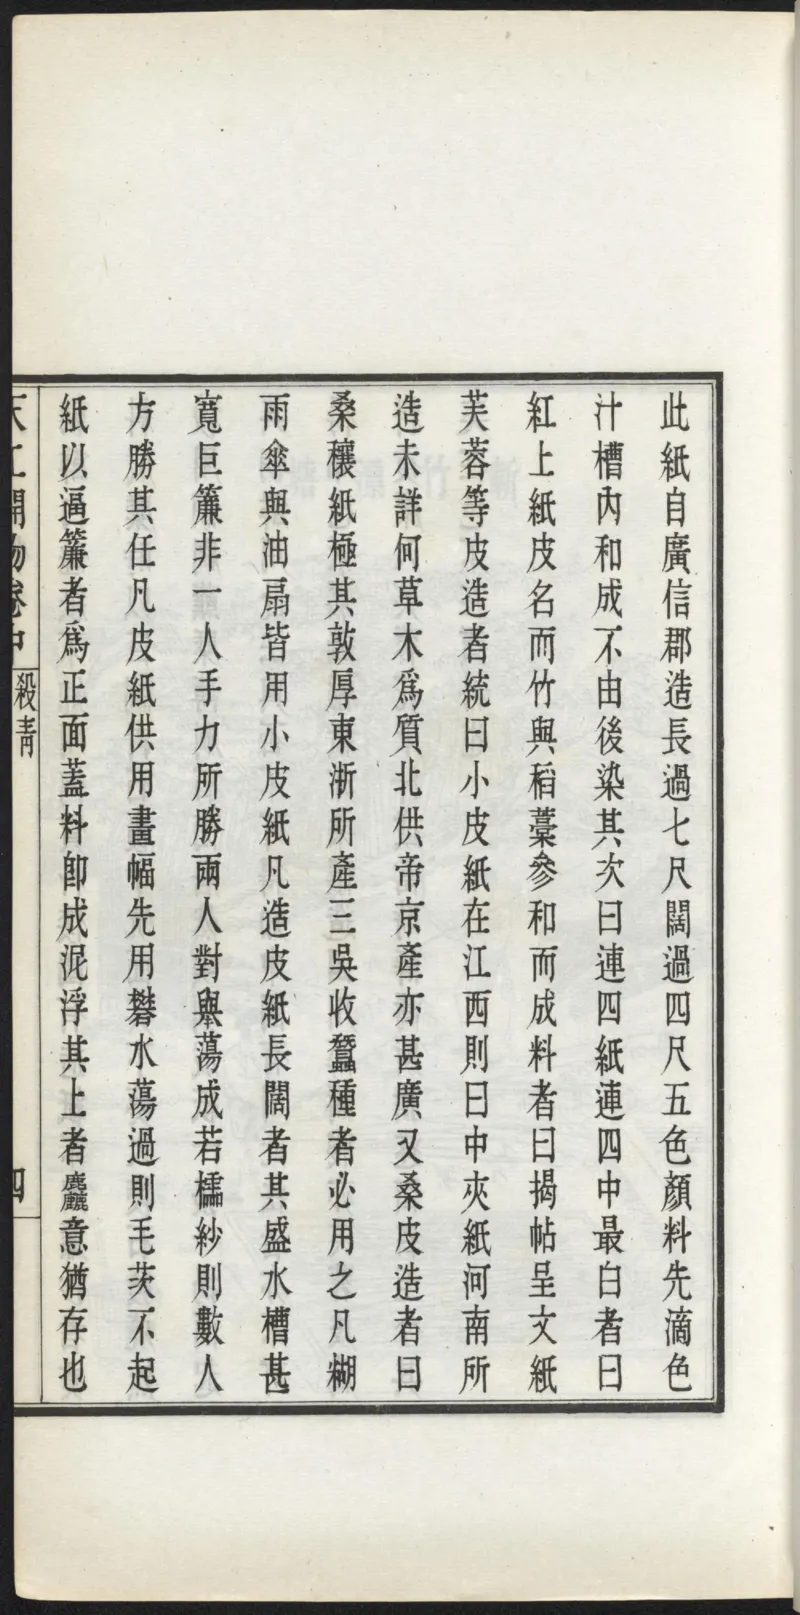 此紙自廣信郡造長過七尺闊過四尺五色顏料先滴色
汁槽內和成不由後染其次曰連四紙連四中最白者曰
紅上紙皮名而竹與稻藁參和而成料者曰揭帖呈文紙
芙蓉等皮造者統曰小皮紙在江西則曰中夾紙河南所
造未詳何草木爲質北供帝京產亦甚廣又桑皮造者曰
桑穰紙極其敦厚東淅所產三吳收蠶種者必用之凡糊
雨傘與油扇皆用小皮紙凡造皮紙長闊者其盛水槽甚
寬巨簾非一人手力所勝兩人對舉蕩成若櫺紗則數人
方勝其任凡皮紙供用畫幅先用礬水蕩過則毛茨不起
紙以逼簾者爲正面蓋料卽成泥浮其上者麤意猶存也
天工開物卷中 殺靑 四